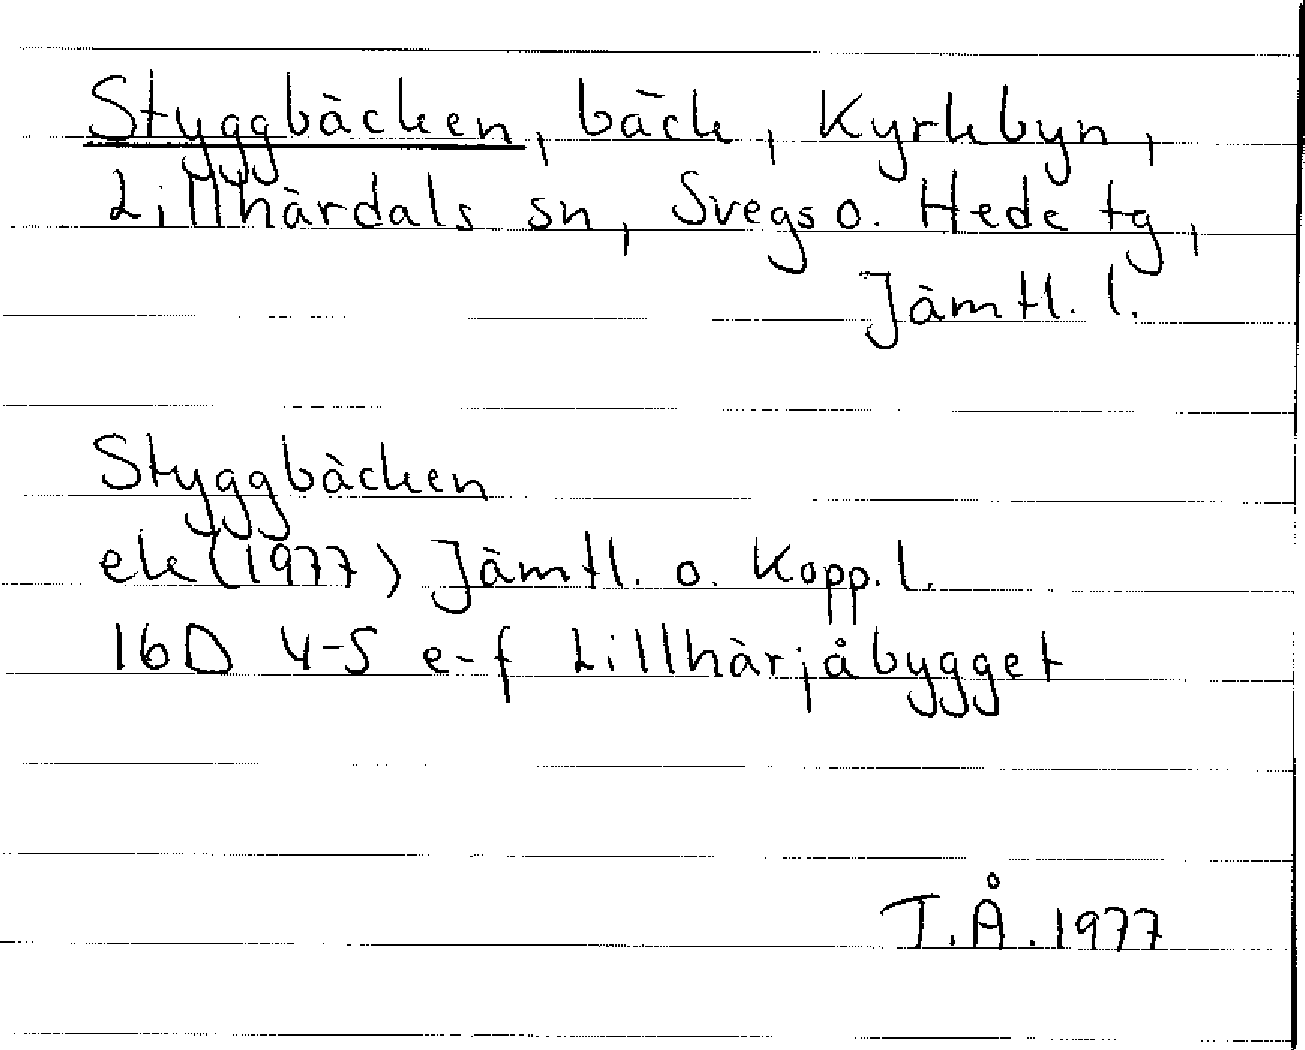 Styggbäcken, bäck, Kyrkbyn,
Lillhärdals sn, Svegs o. Hede tg,
Jämtl. l.
Styggbäcken
ek (1977) Jämtl. o. Kopp. l.
16D 4-5 e-f Lillhärjåbygget
T.Å. 1977